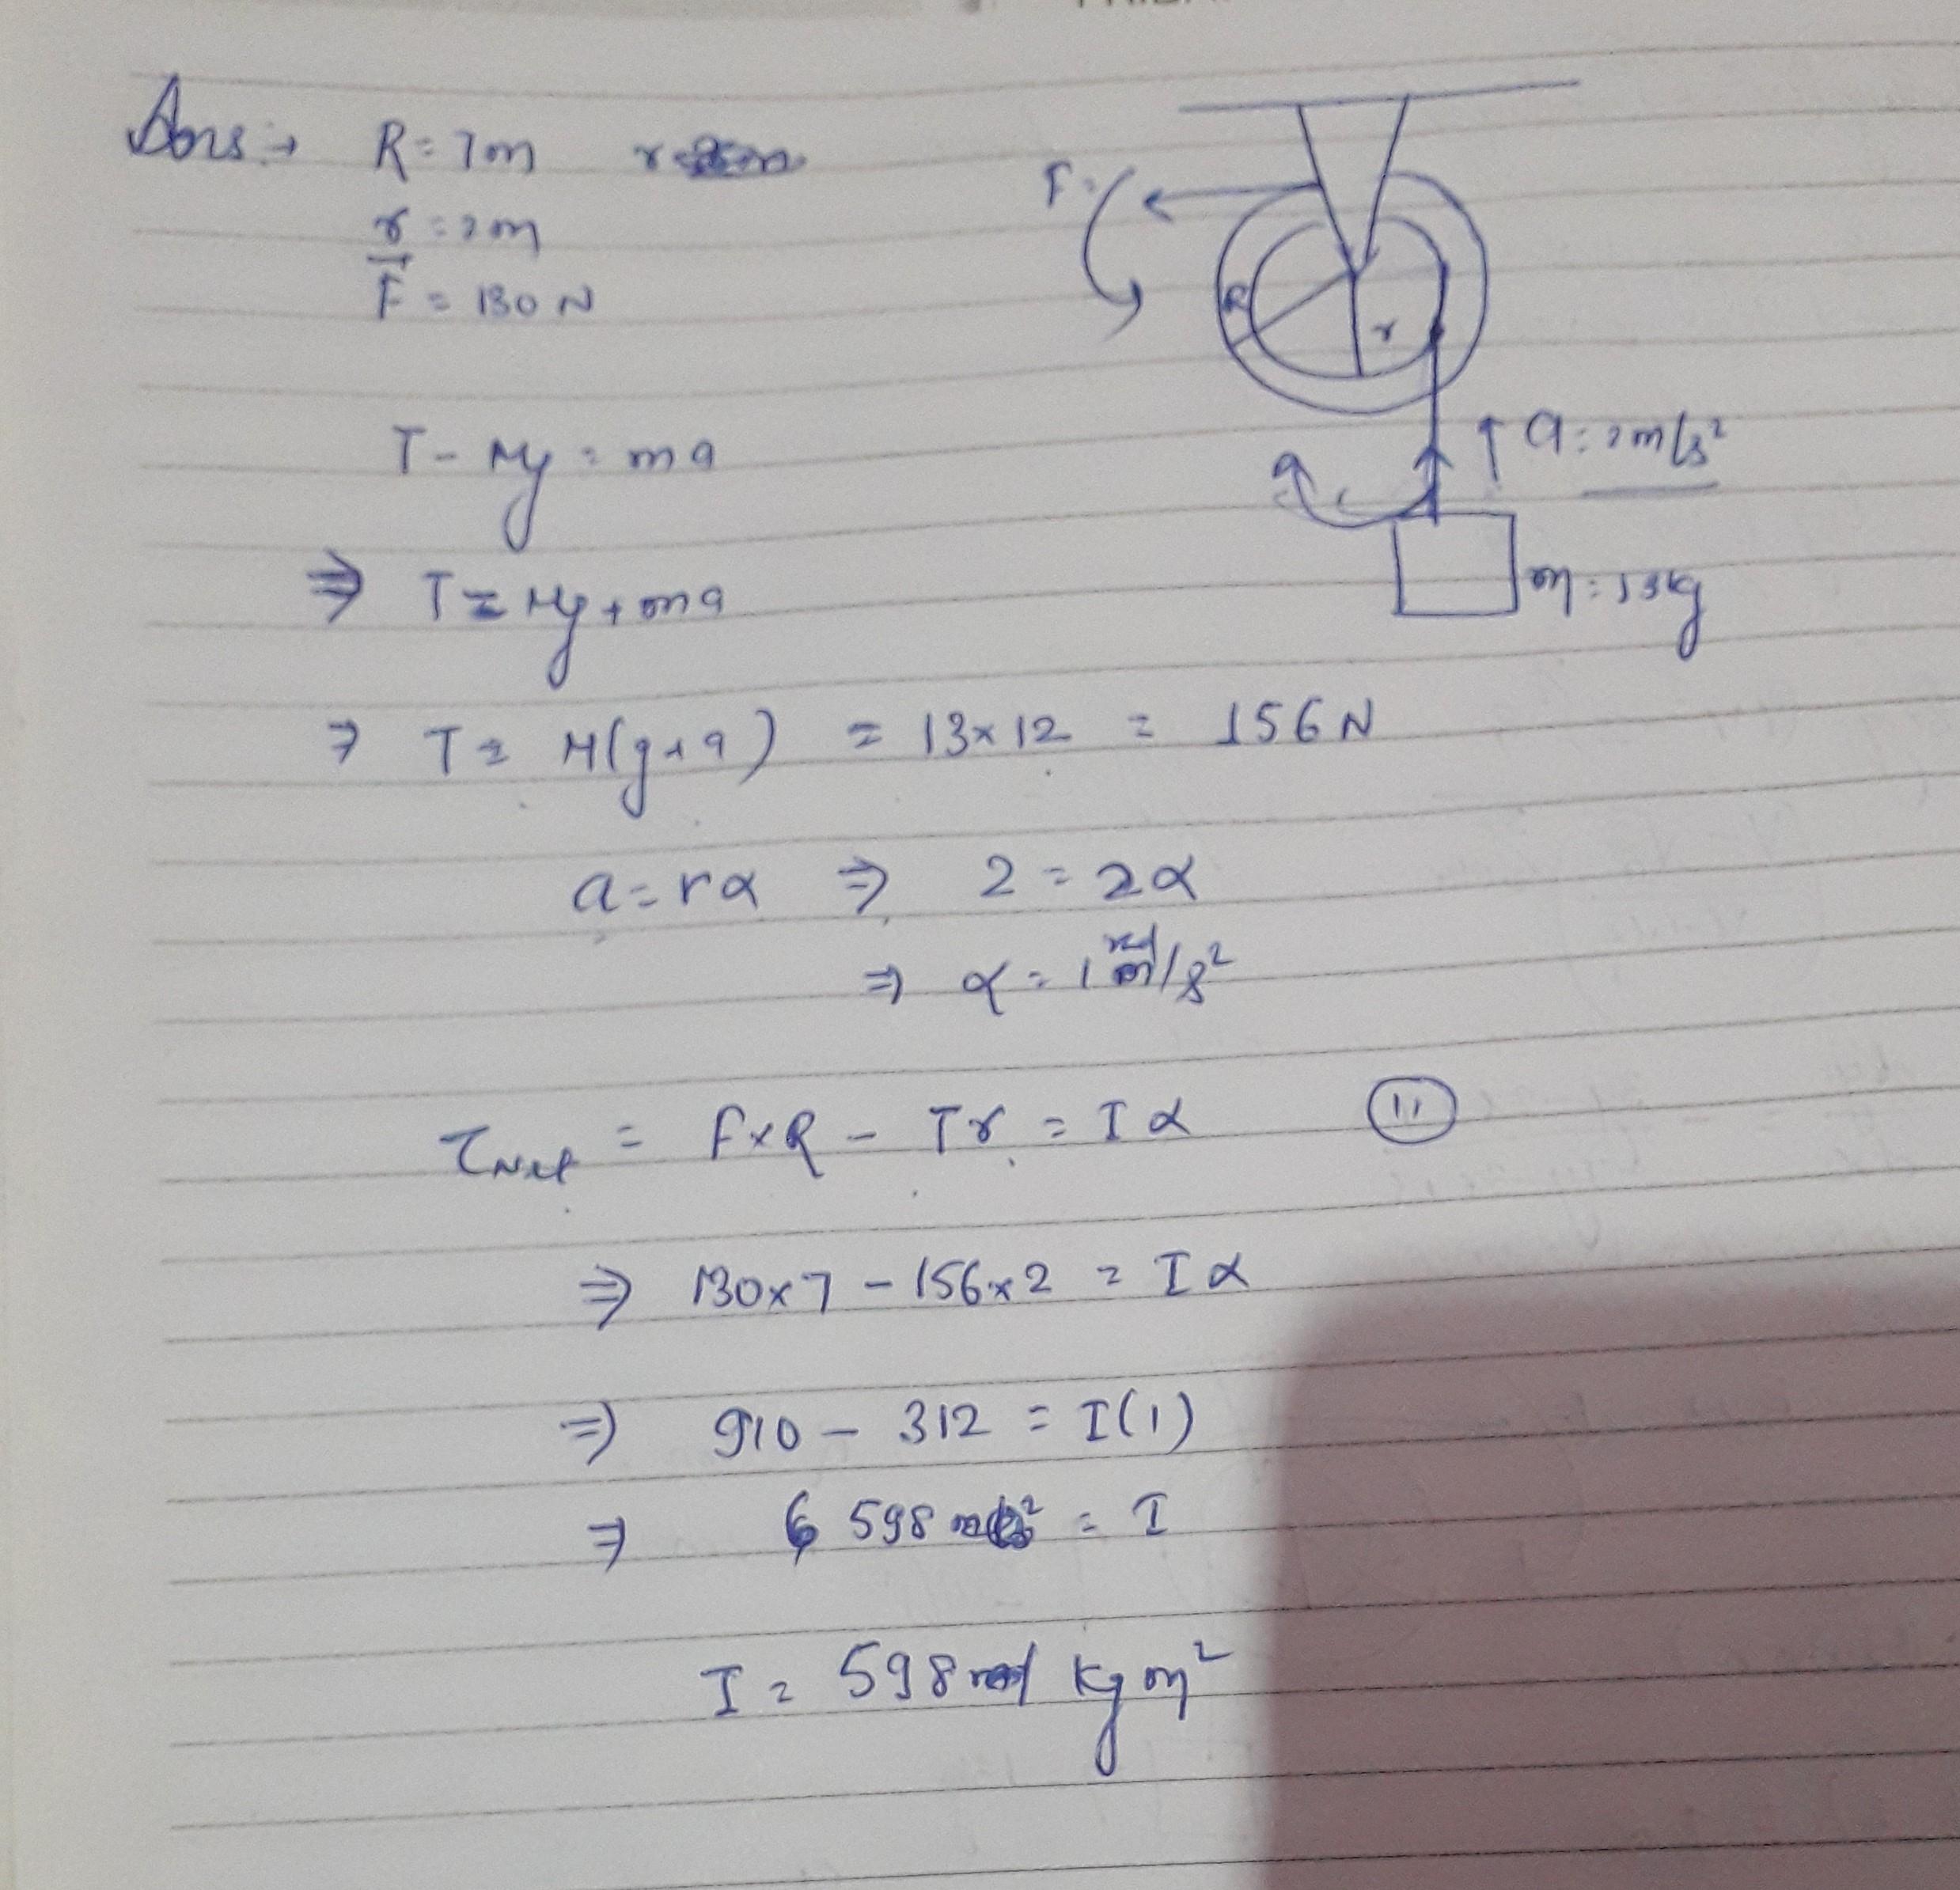 Ans:→ R = 7m
r = 2m
F = 130 N
F
R
r
a = 2m/s²
a
m = 13kg
T - Mg = ma
⇒ T = Mg + ma
⇒ T = M(g+a) = 13×12 = 156N
a = rα ⇒ 2 = 2α
⇒ α = 1 rad/s²
τNet = F×R - Tr = Iα (11)
⇒ 130×7 - 156×2 = Iα
⇒ 910 - 312 = I(1)
⇒ 598 = I
I = 598 kg m²